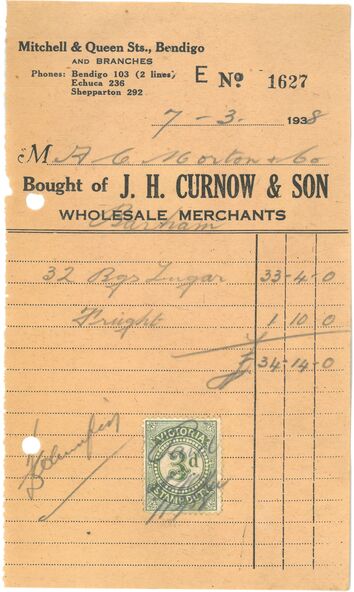 Mitchell & Queen Sts., Bendigo
AND BRANCHES
Phones: Bendigo 103 (2 lines)
Echuca 236
Shepparton 292
E No. 1627
7 - 3. 1938
M A C Morton & Co
Bought of J. H. CURNOW & SON
WHOLESALE MERCHANTS
Barham
32 Bgs Sugar 33-4-0
Freight 1 10 0
£ 34-14-0
VICTORIA
3d
STAMP DUTY